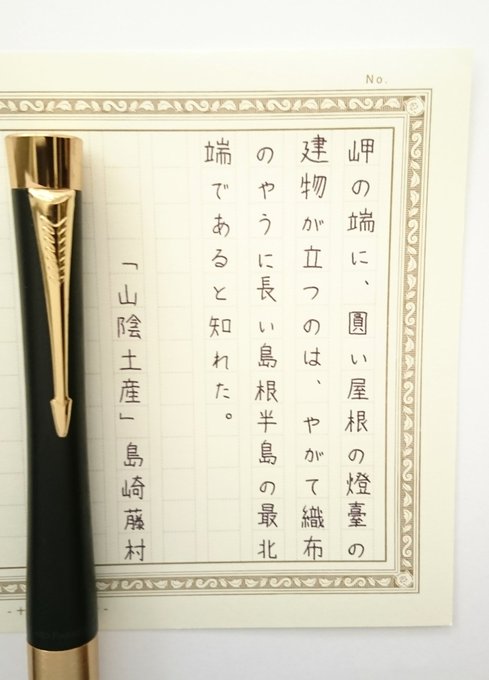 No.
岬の端に、圓い屋根の燈臺の
建物が立つのは、やがて織布
のやうに長い島根半島の最北
端であると知れた。
「山陰土産」島崎藤村